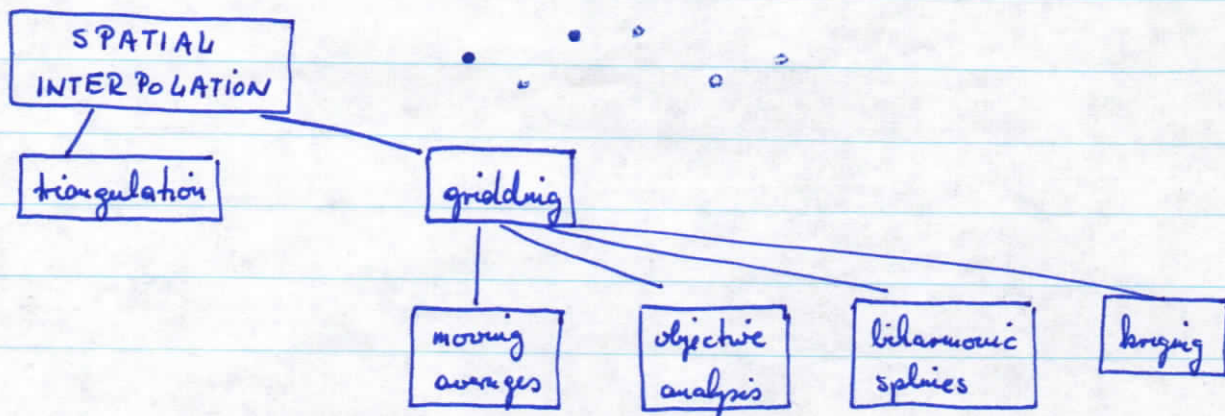 SPATIAL
INTERPOLATION
triangulation
gridding
moving
averages
objective
analysis
biharmonic
splines
kriging